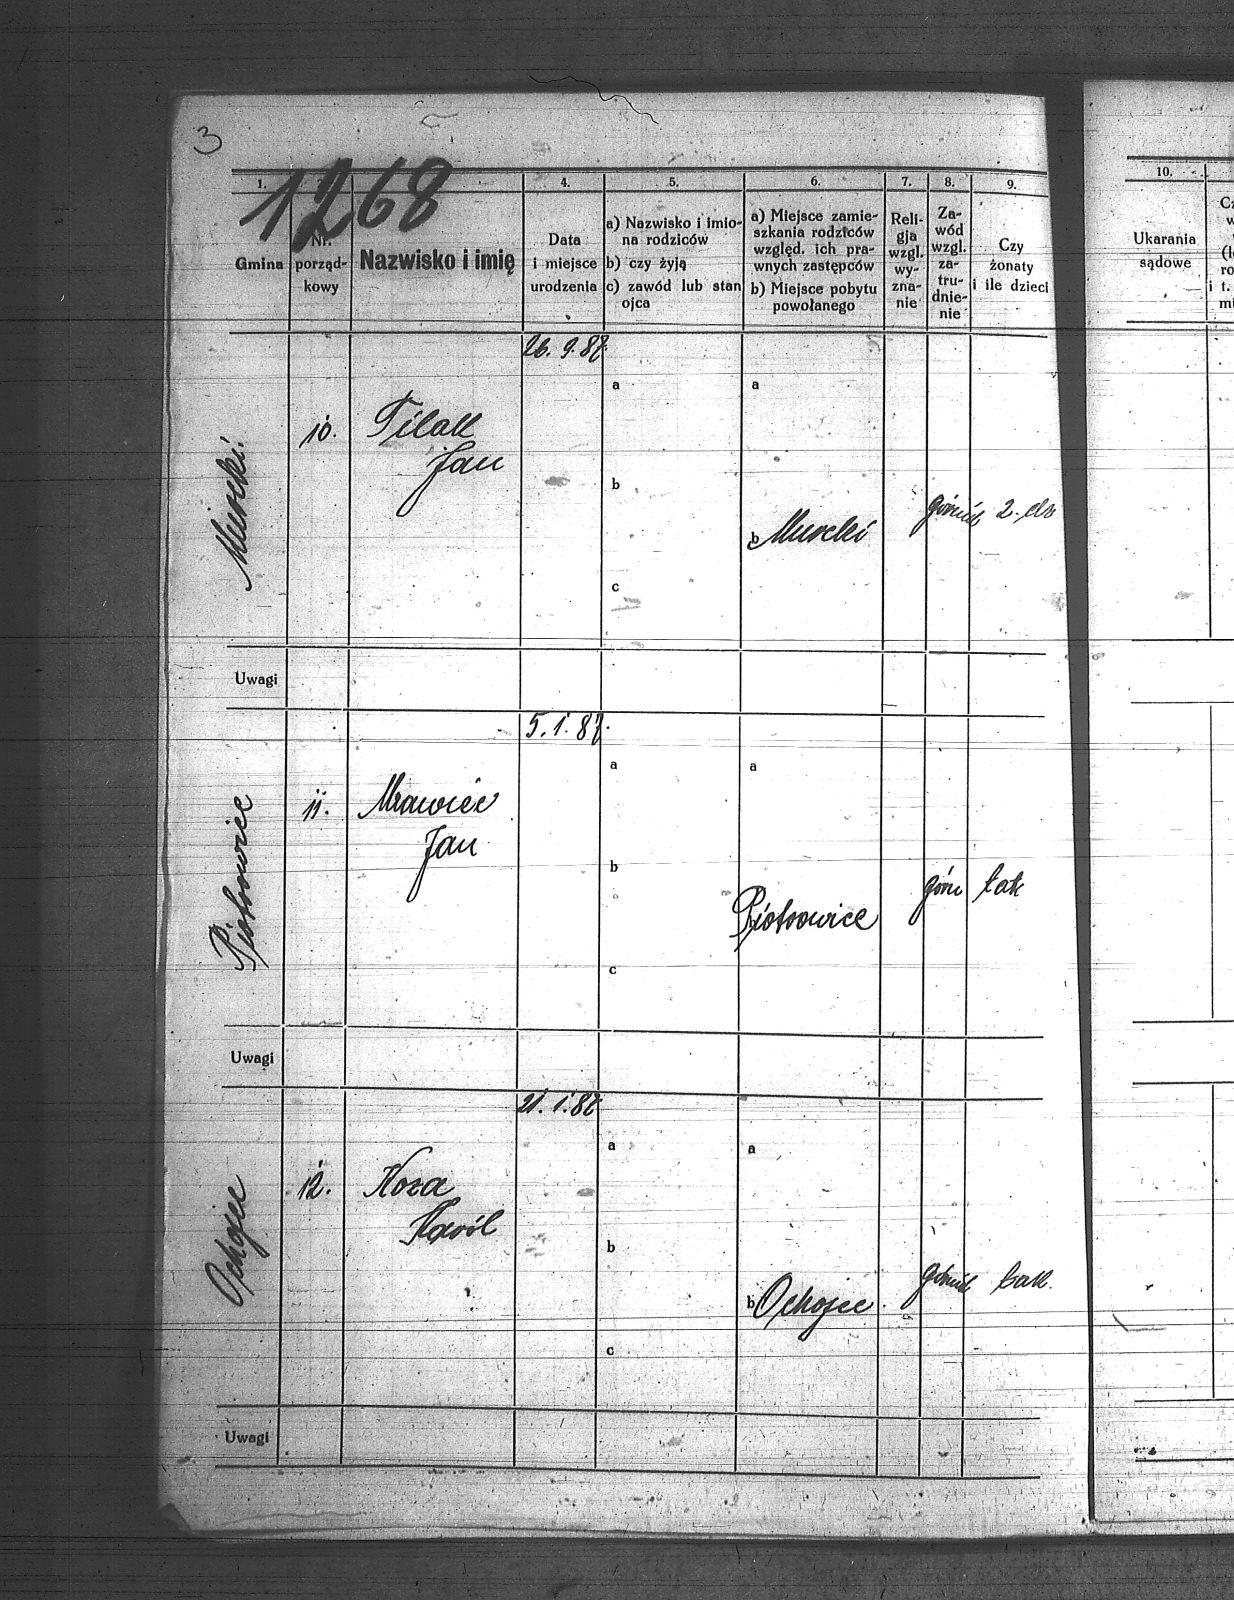 3
1268
1.
4.
5.
6.
7.
8.
9.
10.
Gmina
Nr. porząd-
kowy
Nazwisko i imię
Data
i miejsce
urodzenia
a) Nazwisko i imio-
na rodziców
b) czy żyją
c) zawód lub stan
ojca
a) Miejsce zamie-
szkania rodziców
względ. ich pra-
wnych zastępców
b) Miejsce pobytu
powołanego
Reli-
gja
wzgl.
wy-
zna-
nie
Za-
wód
wzgl.
za-
tru-
dnie-
nie
Czy
żonaty
i ile dzieci
Ukarania
sądowe
Murcki
10.
Filak
Jan
26. 9. 87.
a
b
c
a
b Murcki
górnik
2.
Uwagi
Piotrowice
11.
Mrawiec
Jan
5. 1. 87.
a
b
c
a
b Piotrowice
górn
tak
Uwagi
Ochojec
12.
Koza
Karól
21. 1. 87
a
b
c
a
b Ochojec.
górnik
tak.
Uwagi